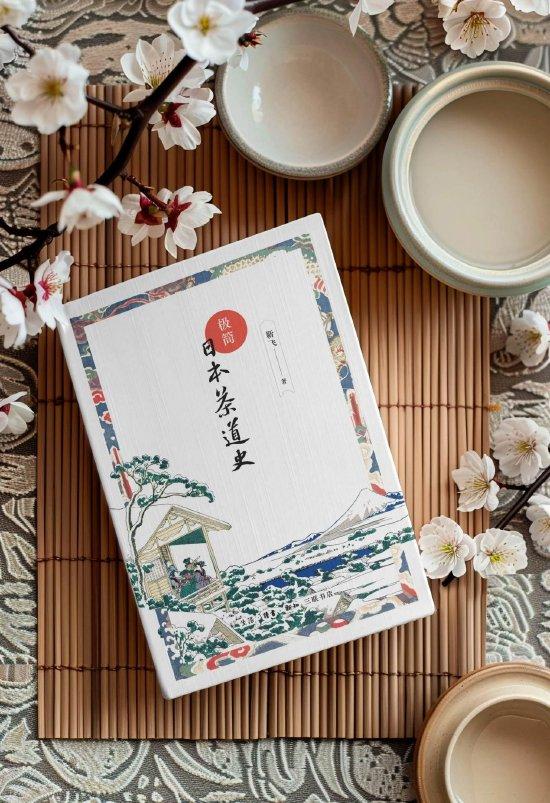 极简
日本茶道史
靳飞 著
生活·讀書·新知 三联书店